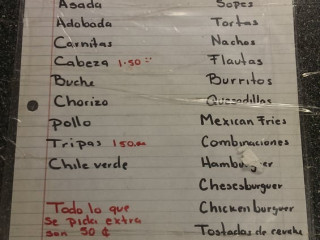 Asada
Adobada
Carnitas
Cabeza 1.50
Buche
Chorizo
Pollo
Tripas 1.50
Chile verde
Todo lo que
se pida extra
son 50 ¢
Sopes
Tortas
Nachos
Flautas
Burritos
Quesadillas
Mexican Fries
Combinaciones
Hamburger
Chesesburguer
Chicken burguer
Tostadas de ceviche